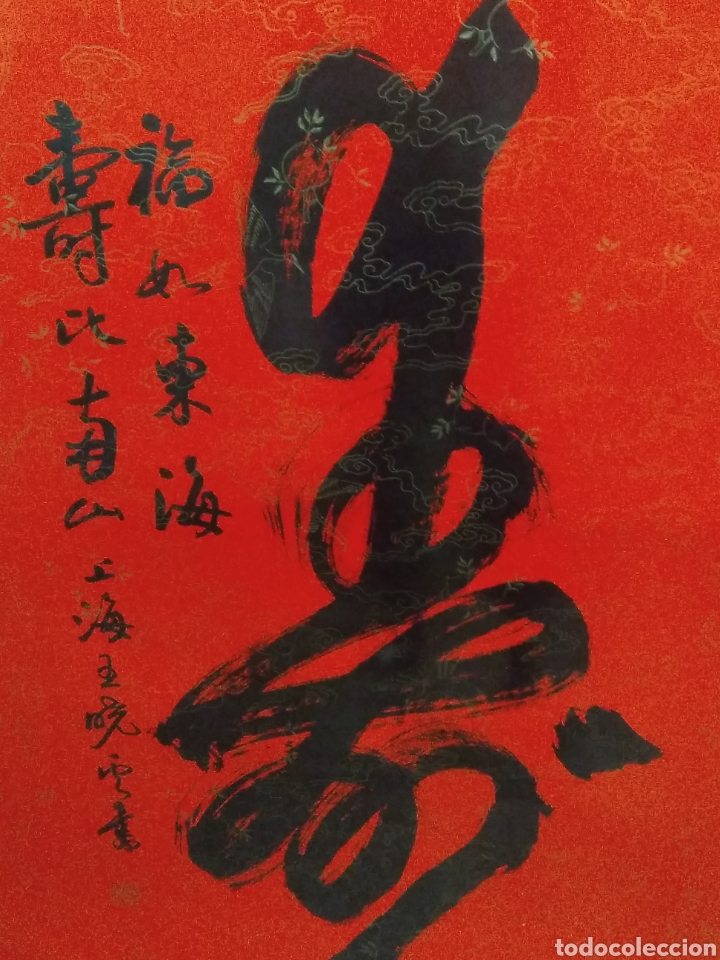 壽
福如東海
壽比南山
上海王曉雲書
todocoleccion